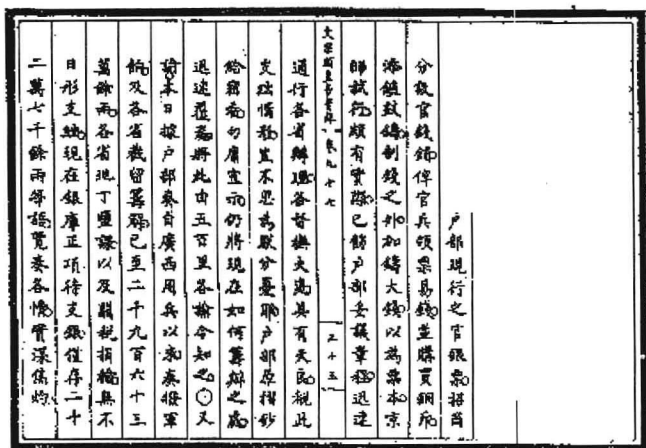 戶部現行之官銀票招商
分設官錢鋪俾官兵領票易錢並購買銅斤
添鑪鼓鑄制錢之外加鑄大錢以為票本京
師試行頗有實際已飭戶部妥議章程迅速
文宗顯皇帝實錄 卷九十七 三十五
通行各省辦理各督撫大吏具有天良觀此
支絀情形豈不思為朕分憂耶戶部原摺鈔
給寄看勿庸宣示仍將現在如何籌辦之處
迅速覆奏將此由五百里各諭令知之○又
諭本日據戶部奏自廣西用兵以來奏撥軍
餉及各省截留籌解已至二千九百六十三
萬餘兩各省地丁鹽課以及關稅捐輸無不
日形支絀現在銀庫正項待支銀僅存二十
二萬七千餘兩等語覽奏各情實深焦灼